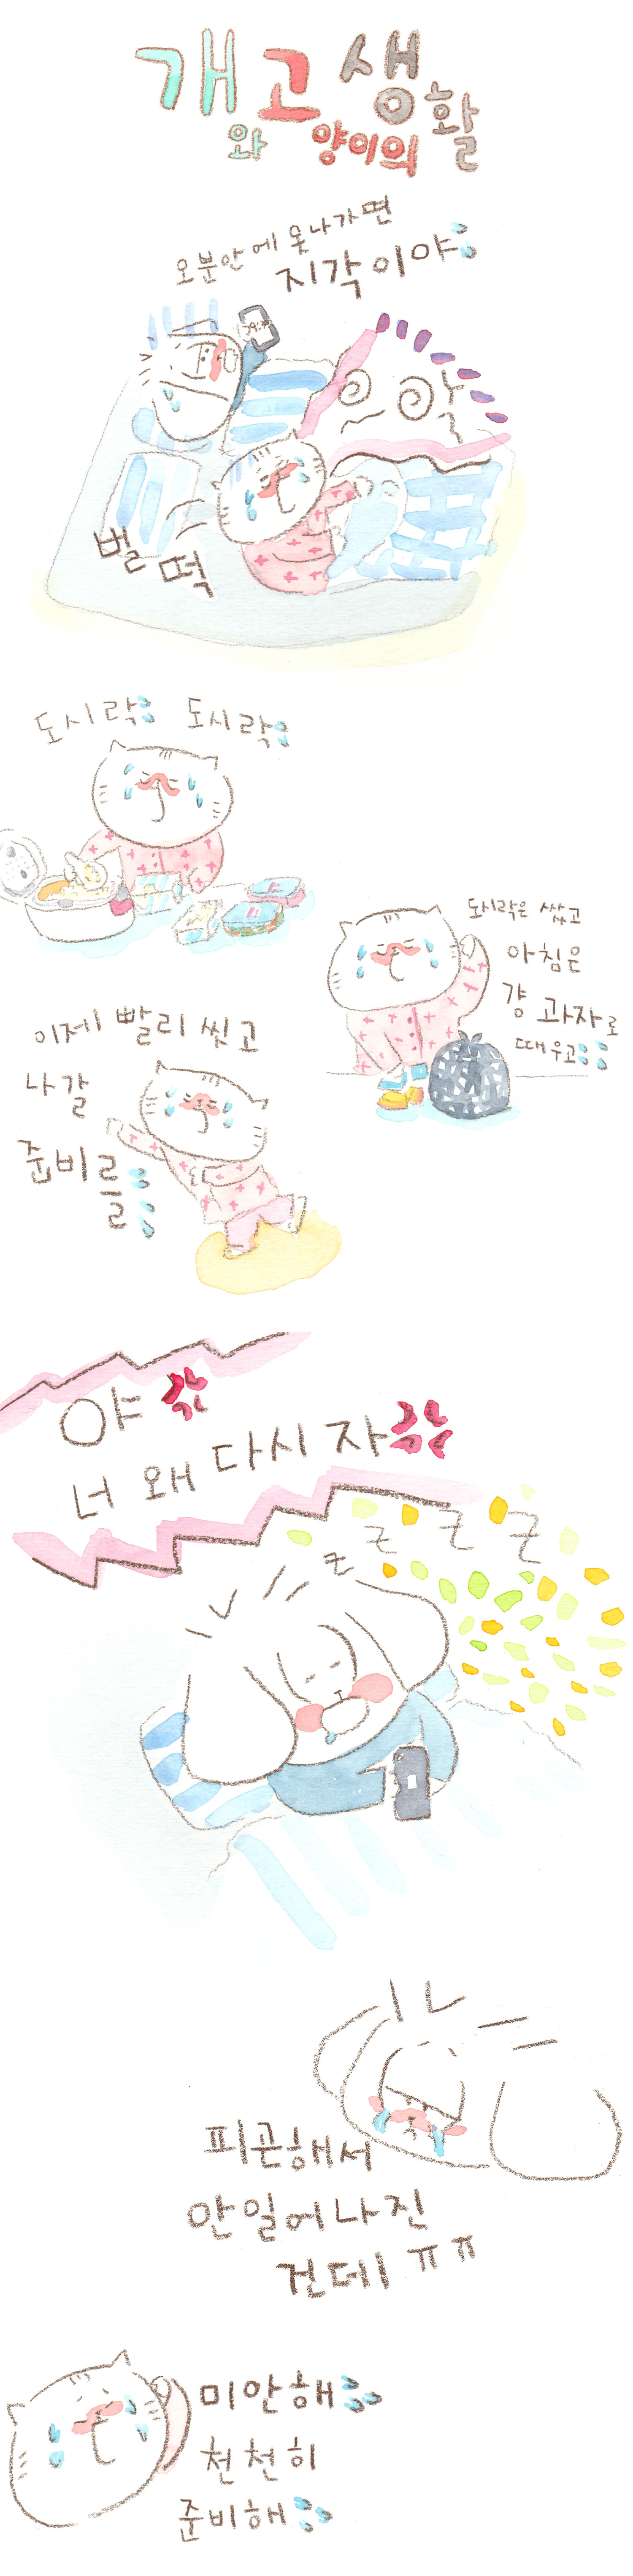 개와 고양이의 생활
오분안에 못나가면
지각이야
으악
벌떡
도시락 도시락
도시락은 쌌고
아침은
걍 과자로
때우고
이제 빨리 씻고
나갈
준비를
야
너 왜 다시 자
z z z z
피곤해서
안일어나진
건데ㅠㅠ
미안해
천천히
준비해